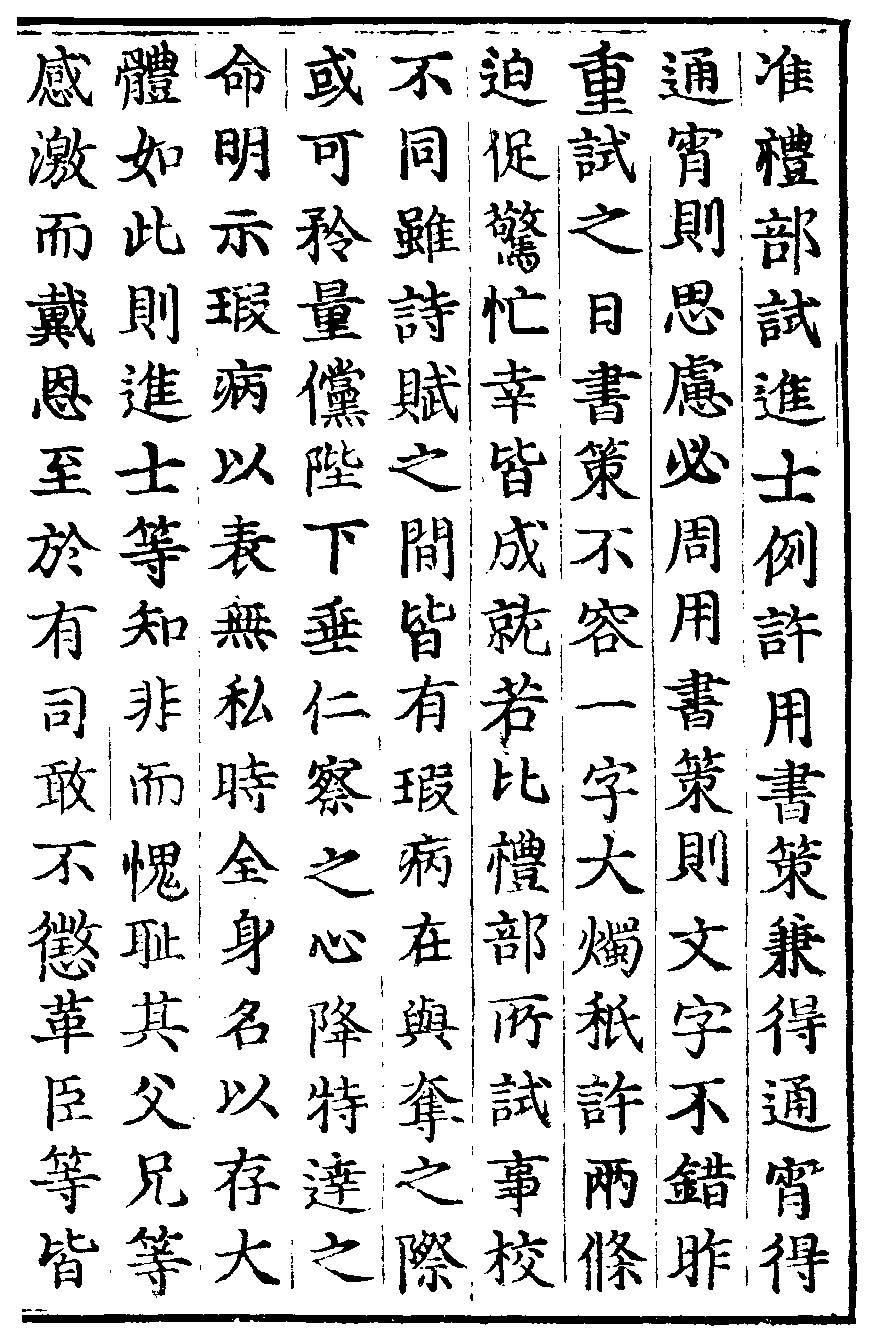 准禮部試進士例許用書策兼得通宵得
通宵則思慮必周用書策則文字不錯昨
重試之日書策不容一字大燭秖許兩條
迫促驚忙幸皆成就若比禮部所試事校
不同雖詩賦之間皆有瑕病在與奪之際
或可矜量儻陛下垂仁察之心降特達之
命明示瑕病以表無私時全身名以存大
體如此則進士等知非而愧恥其父兄等
感激而戴恩至於有司敢不懲革臣等皆